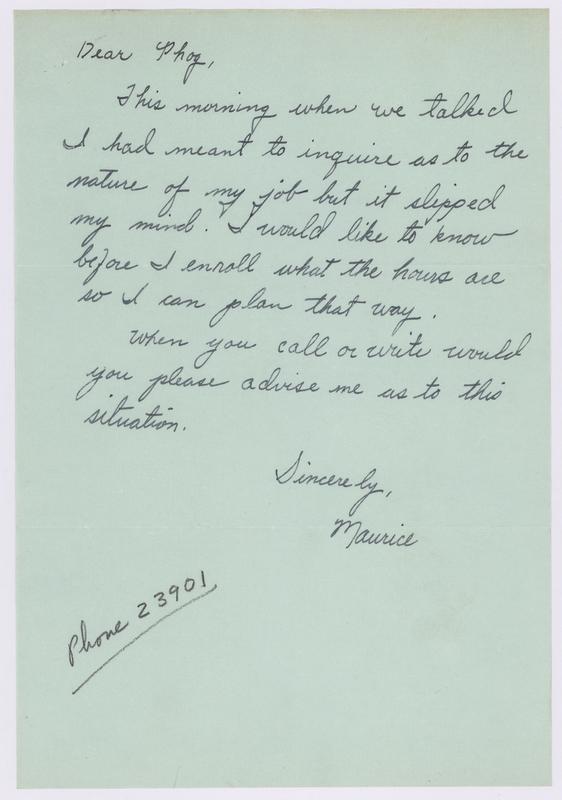 Dear Phog,
This morning when we talked
I had meant to inquire as to the
nature of my job but it slipped
my mind. I would like to know
before I enroll what the hours are
so I can plan that way.
When you call or write would
you please advise me as to this
situation.
Sincerely,
Maurice
Phone 23901